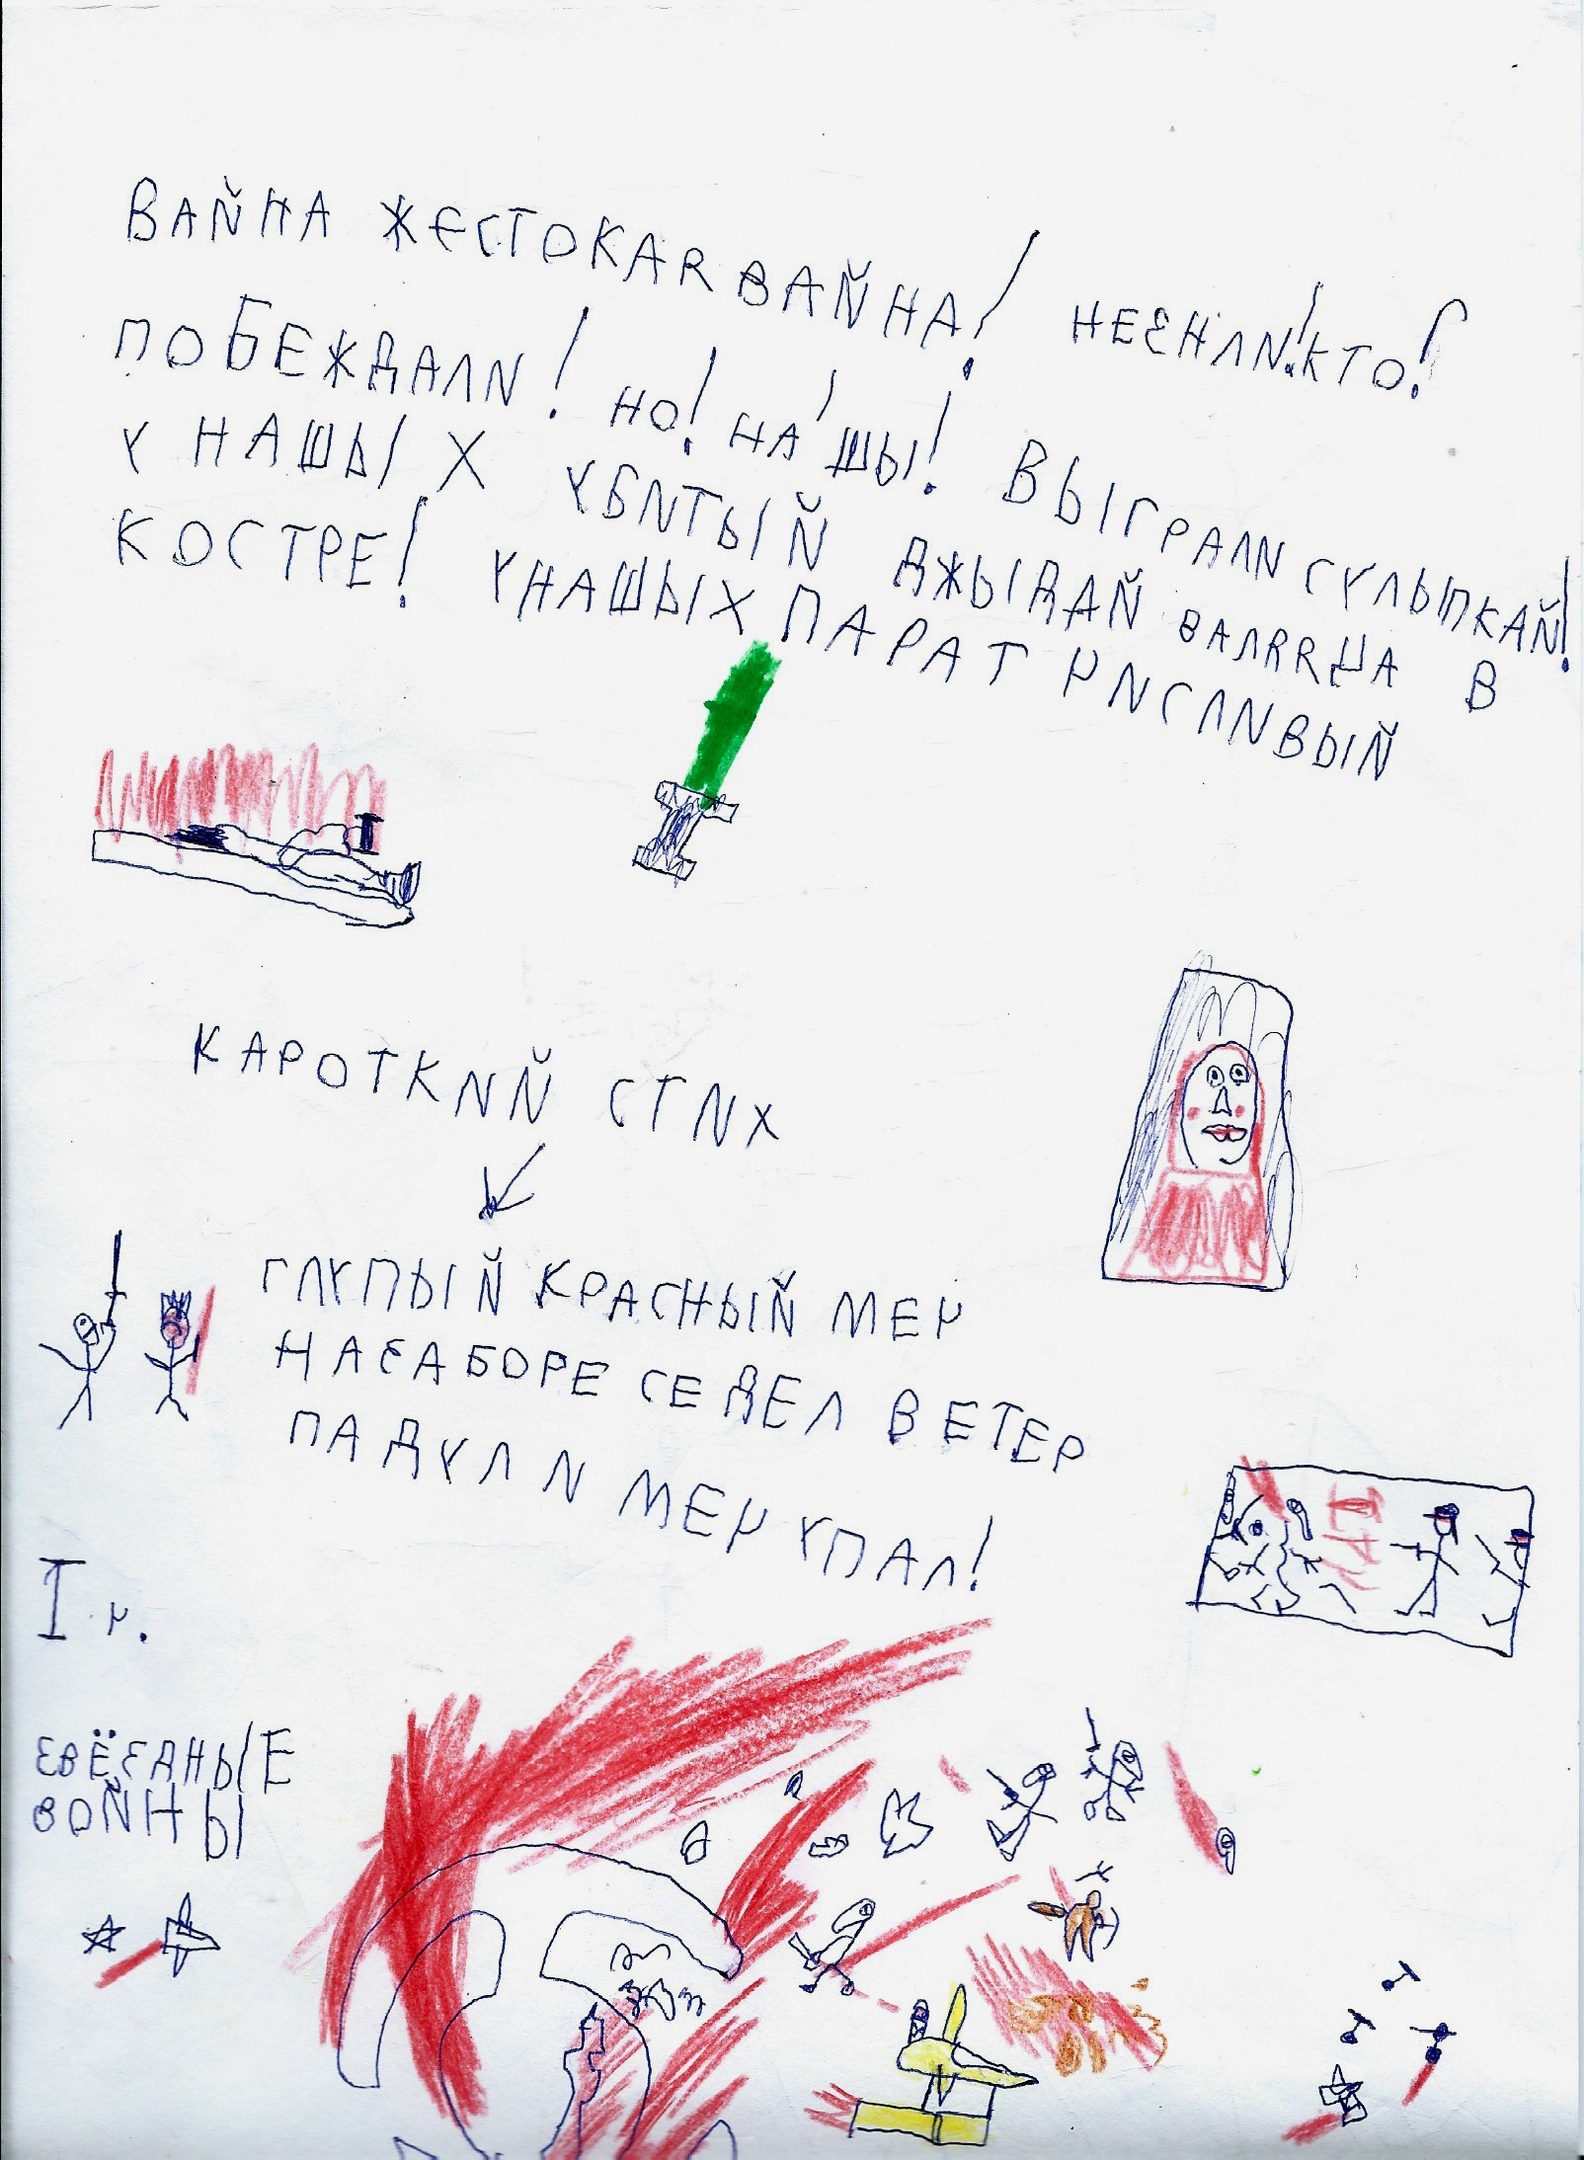 ВАЙНА ЖЕСТОКАЯ ВАЙНА! НЕЗНЛИ! КТО!
ПОБЕЖДАЛИ! НО! НАШЫ! ВЫГРАЛИ СУЛЫПКАЙ!
У НАШЫХ УБИТЫЙ ДЖЫДАЙ ВАЛЯЯЦА В
КОСТРЕ! УНАШЫХ ПАРАТ ЧИСЛИВЫЙ
КАРОТКИЙ СТИХ
ГЛУПЫЙ КРАСНЫЙ МЕЧ
НАЗАБОРЕ СЕДЕЛ ВЕТЕР
ПАДУЛ И МЕЧ УПАЛ!
I ч.
ЗВЁЗДНЫЕ
ВОЙНЫ